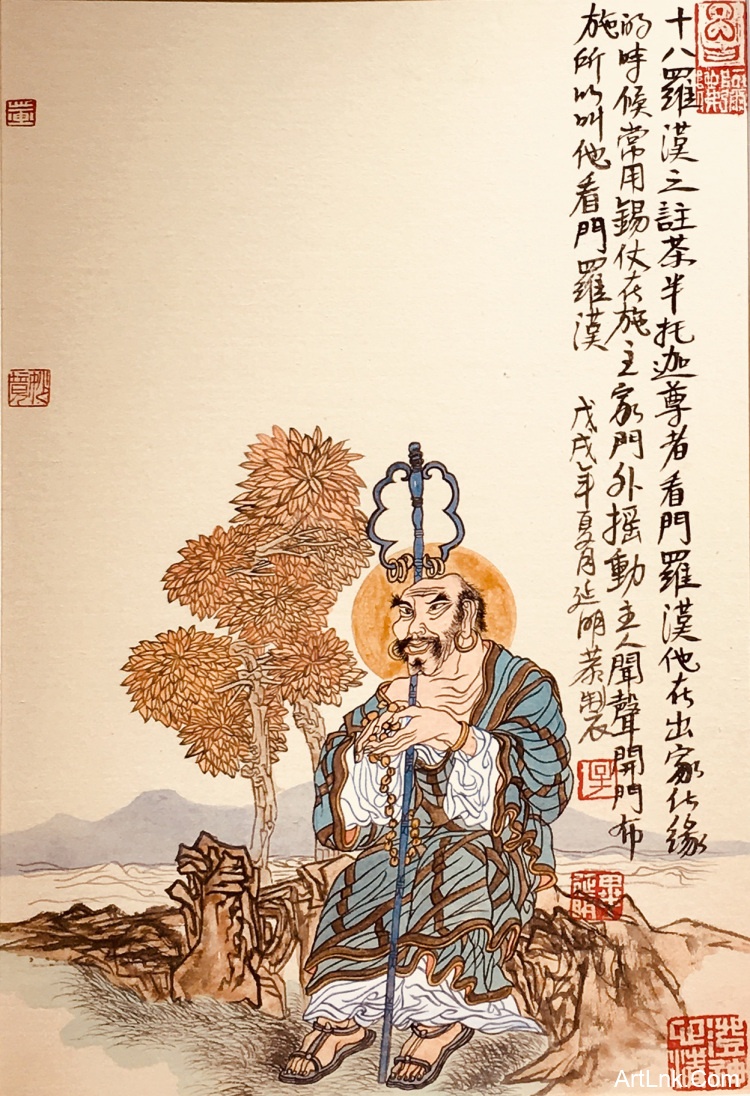 十八羅漢之註茶半托迦尊者看門羅漢他在出家化緣
的時候常用錫仗在施主家門外摇動主人聞聲開門布
施所以叫他看門羅漢 戊戌年夏月延明恭製
ArtLnk.Com